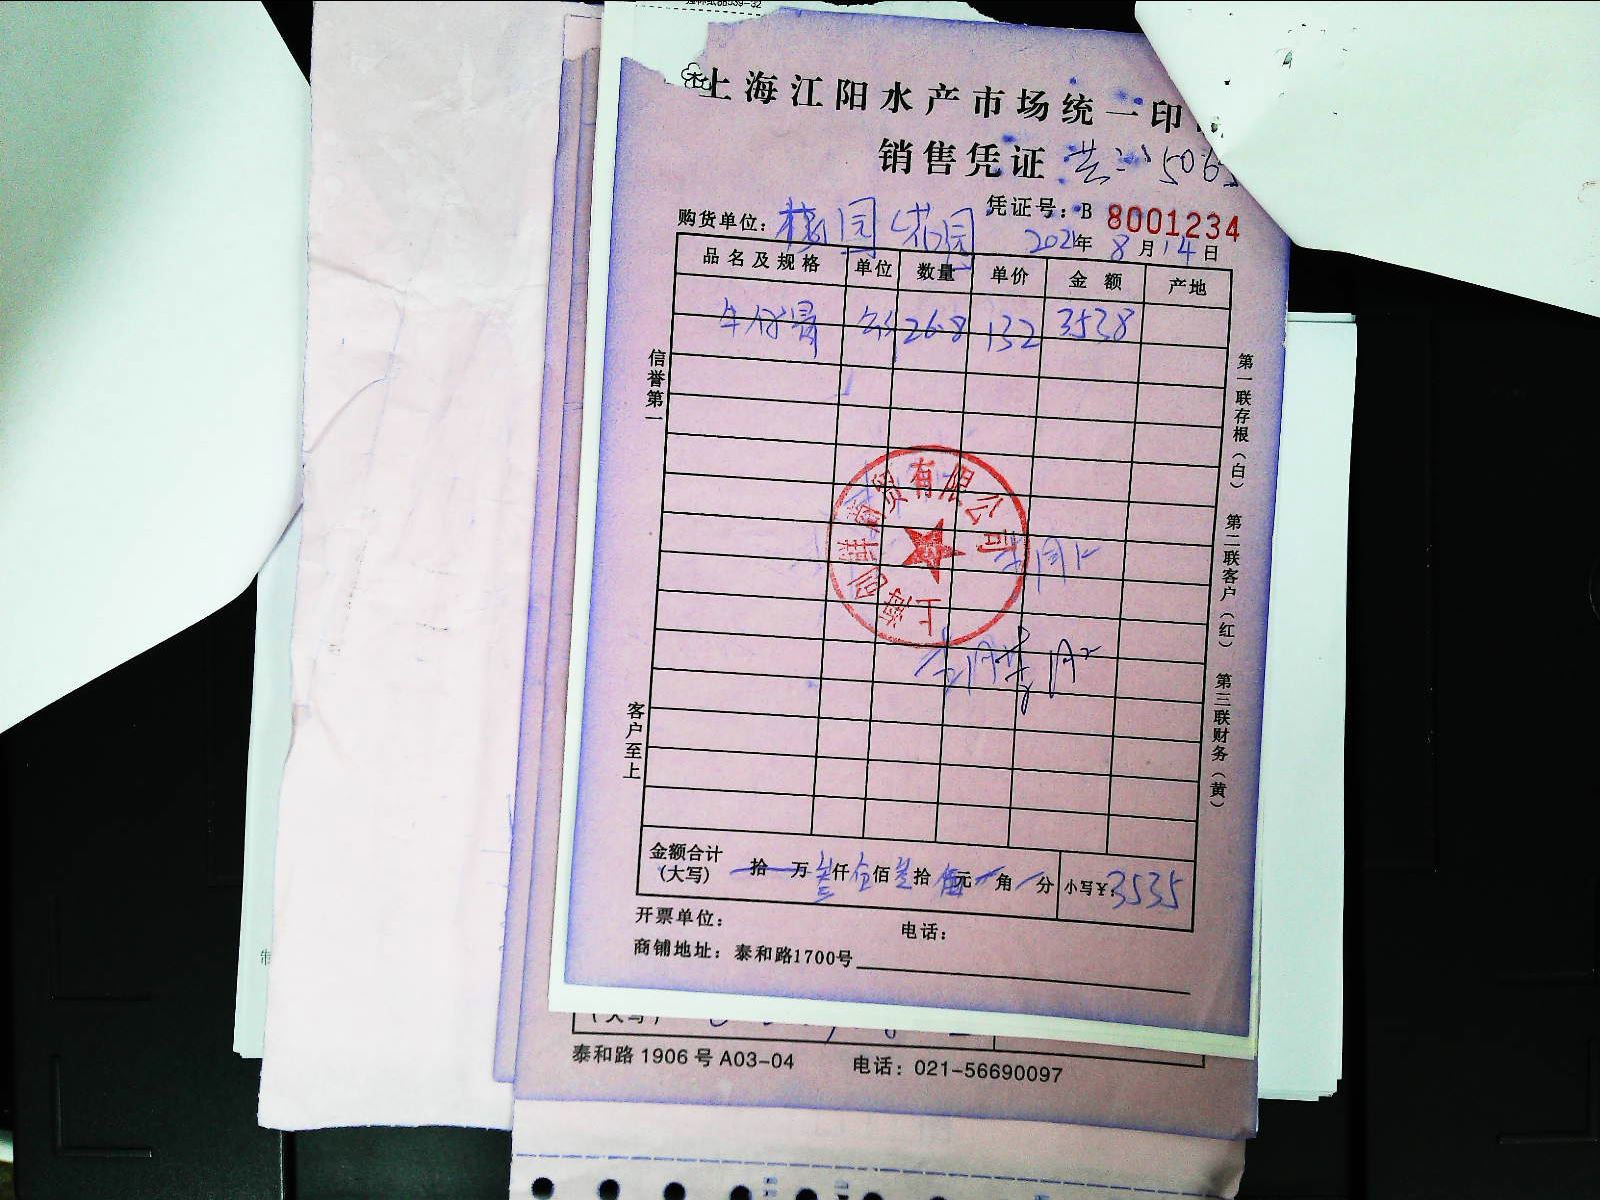 上海江阳水产市场统一印
销售凭证
凭证号：B 8001234
购货单位： 花园
2021年 8月14日
品名及规格 单位 数量 单价 金额 产地
牛仔骨 26.8 132 3538
信誉第一
客户至上
第一联存根（白） 第二联客户（红） 第三联财务（黄）
上海 鲜商贸有限公司
金额合计 拾 万 叁仟伍佰叁拾伍元 角 分 小写¥：3535
（大写）
开票单位： 电话：
商铺地址：泰和路1700号
（大写）
泰和路 1906 号 A03-04 电话：021-56690097